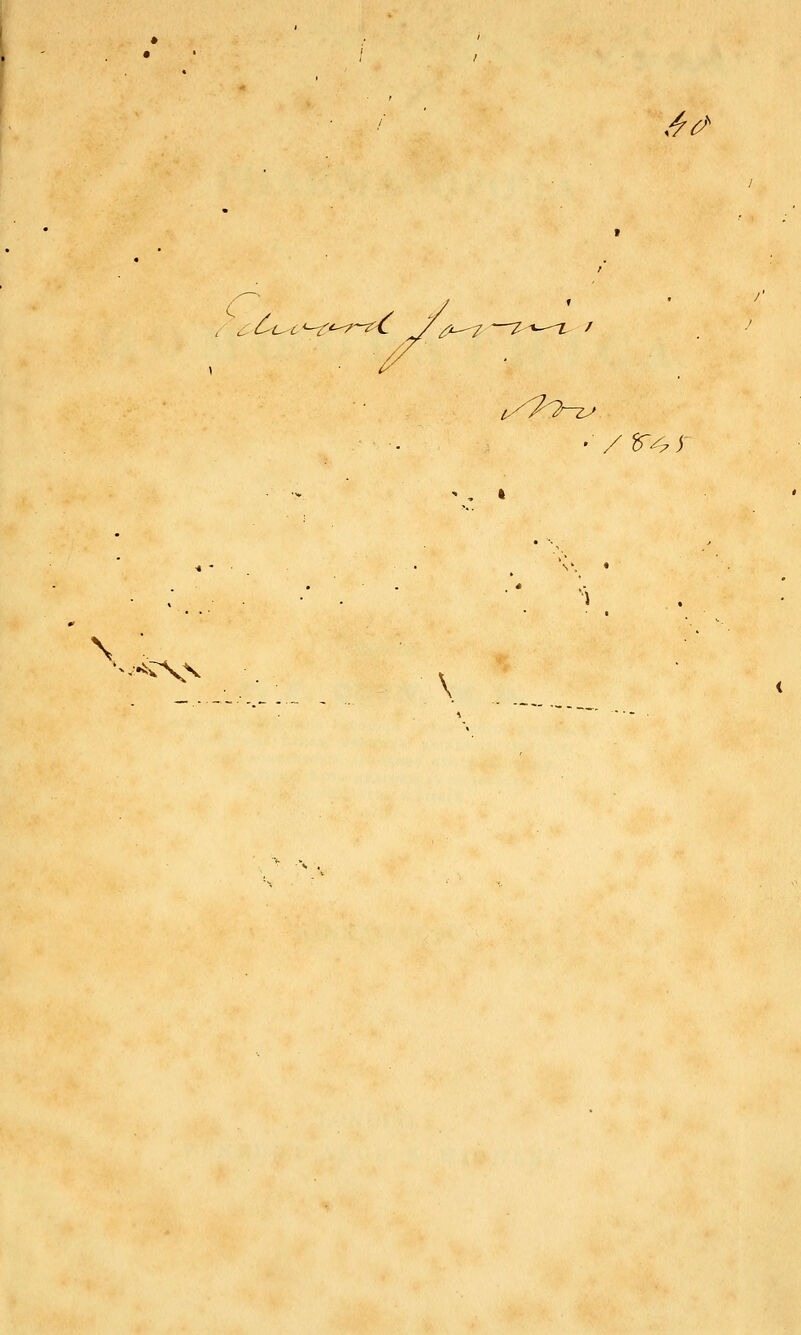 40
Edward Jarvis
Nov
1845